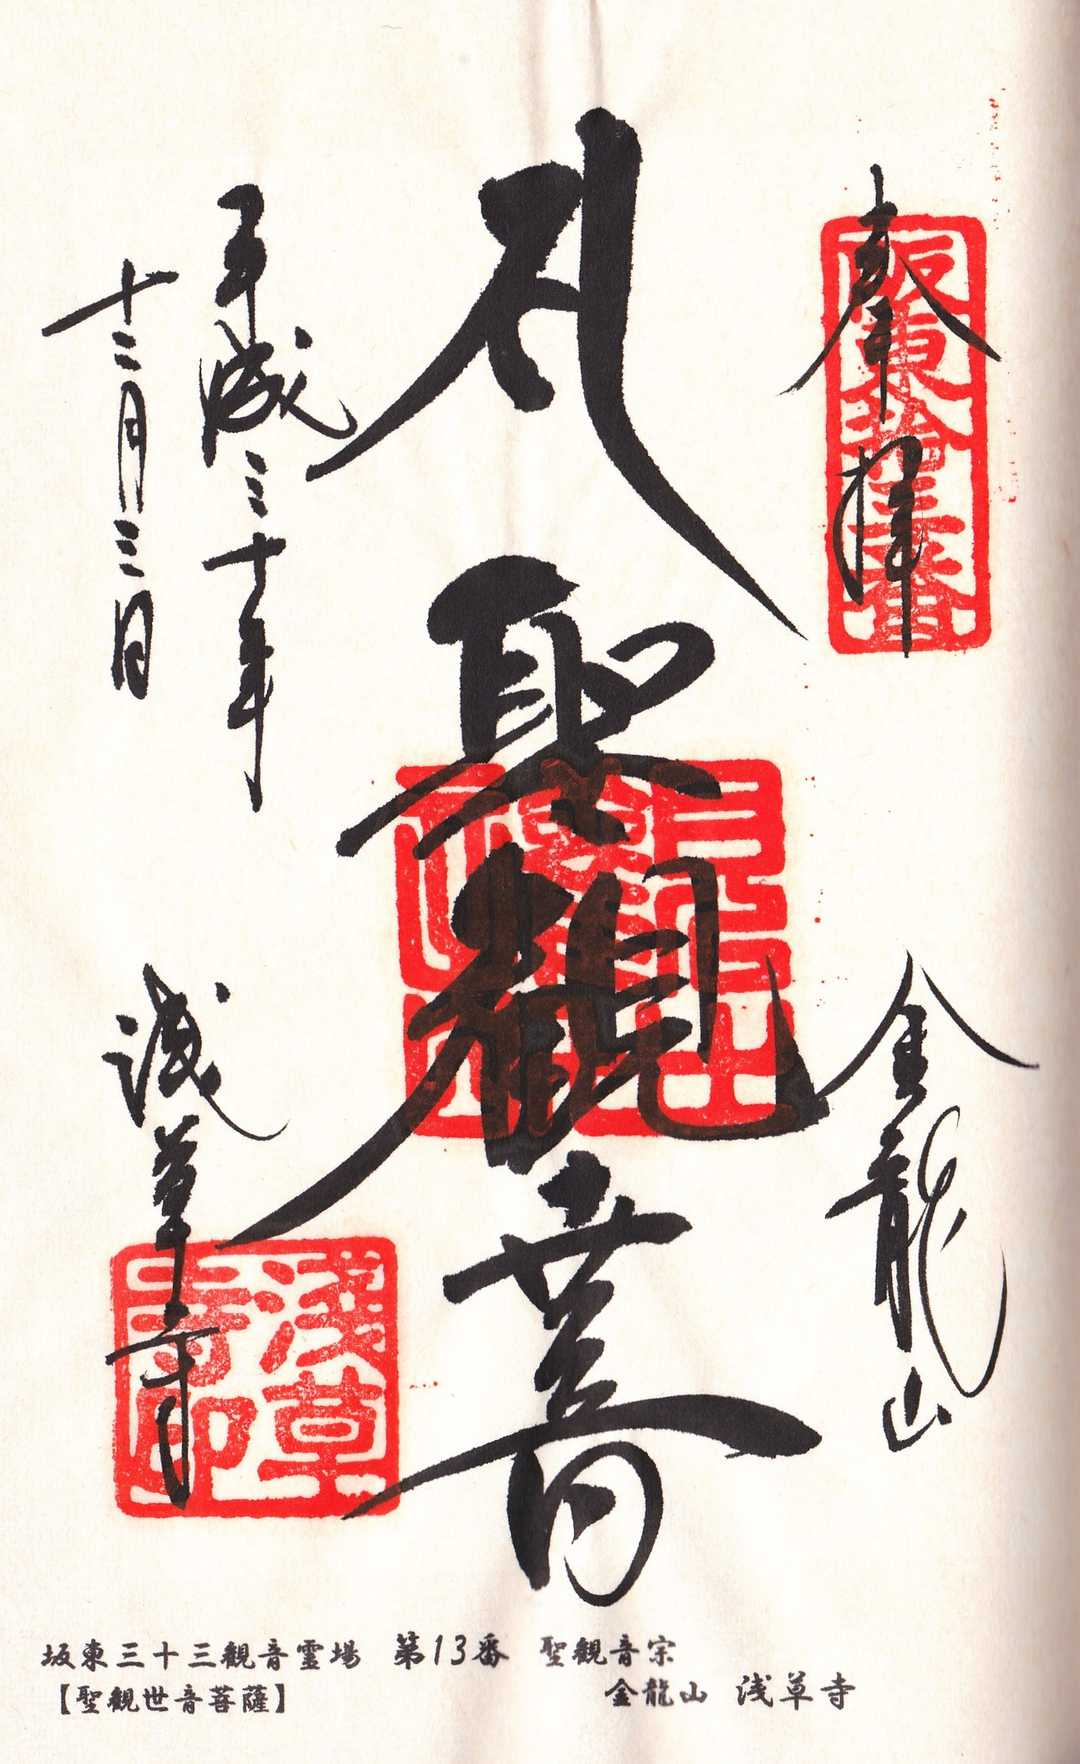 奉拝
坂東拾三番
金龍山
聖観世音
平成三十年
十二月三日
浅草寺
浅草寺印
坂東三十三観音霊場 第13番 聖観音宗
【聖観世音菩薩】 金龍山 浅草寺